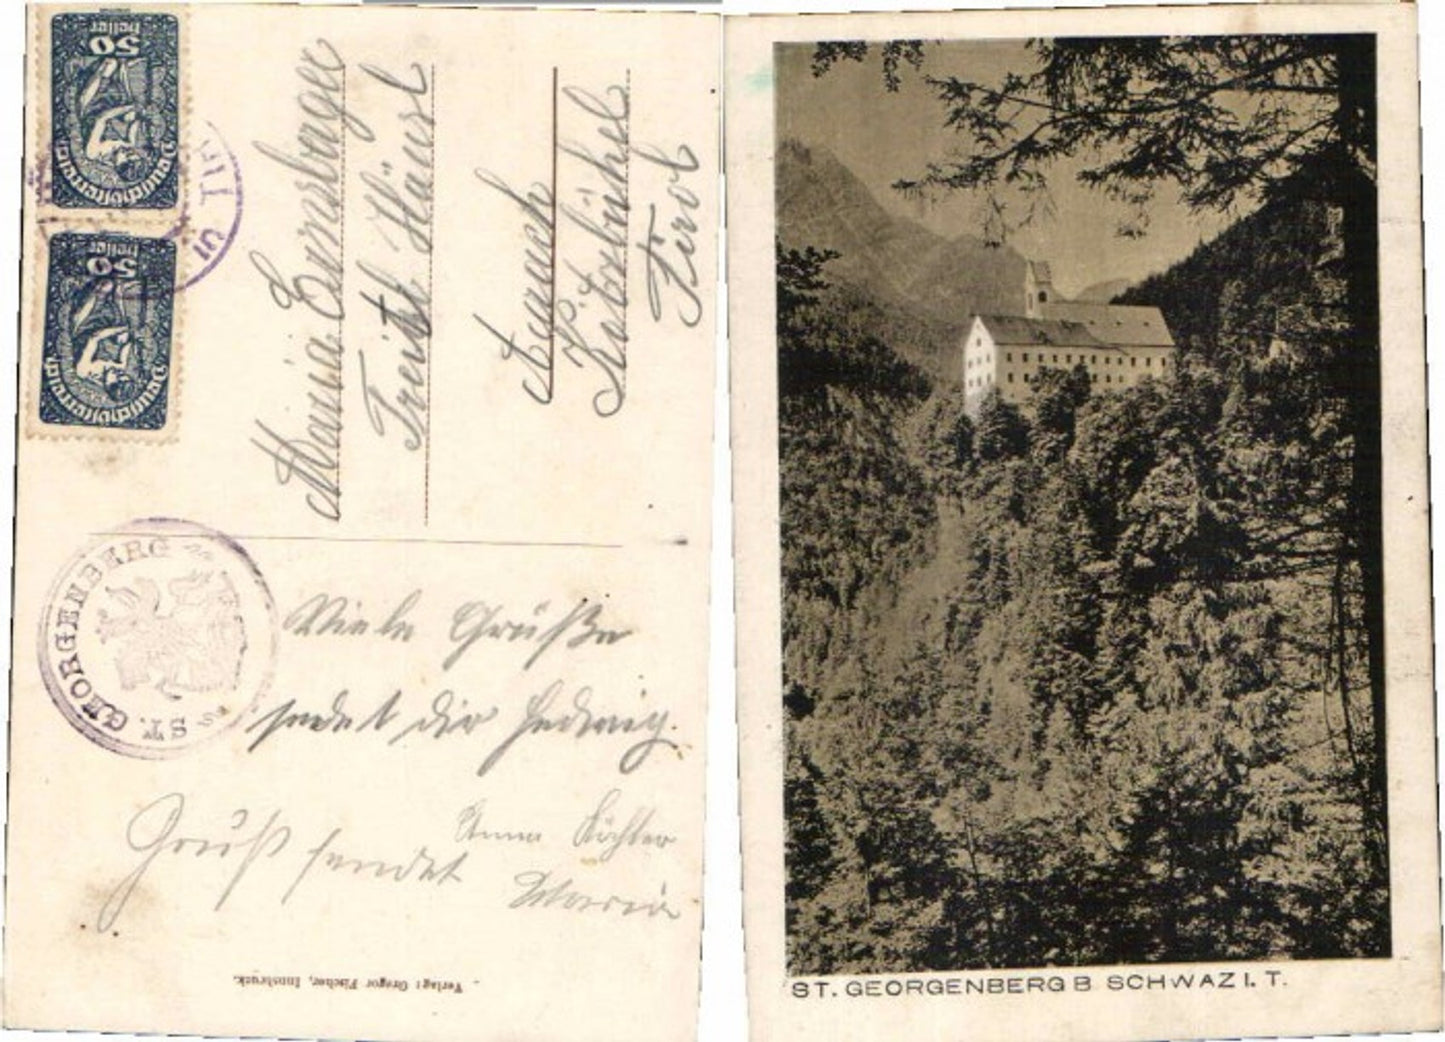 50
heller
Deutschösterreich
50
heller
Deutschösterreich
Maria
Aurach
Kitzbühel
Tirol
ST. GEORGENBERG
Viele Grüße
sendet dir Hedwig.
Gruß sendet Anna
Maria
Verlag: Gregor Fischer, Innsbruck.
ST. GEORGENBERG B SCHWAZ I. T.